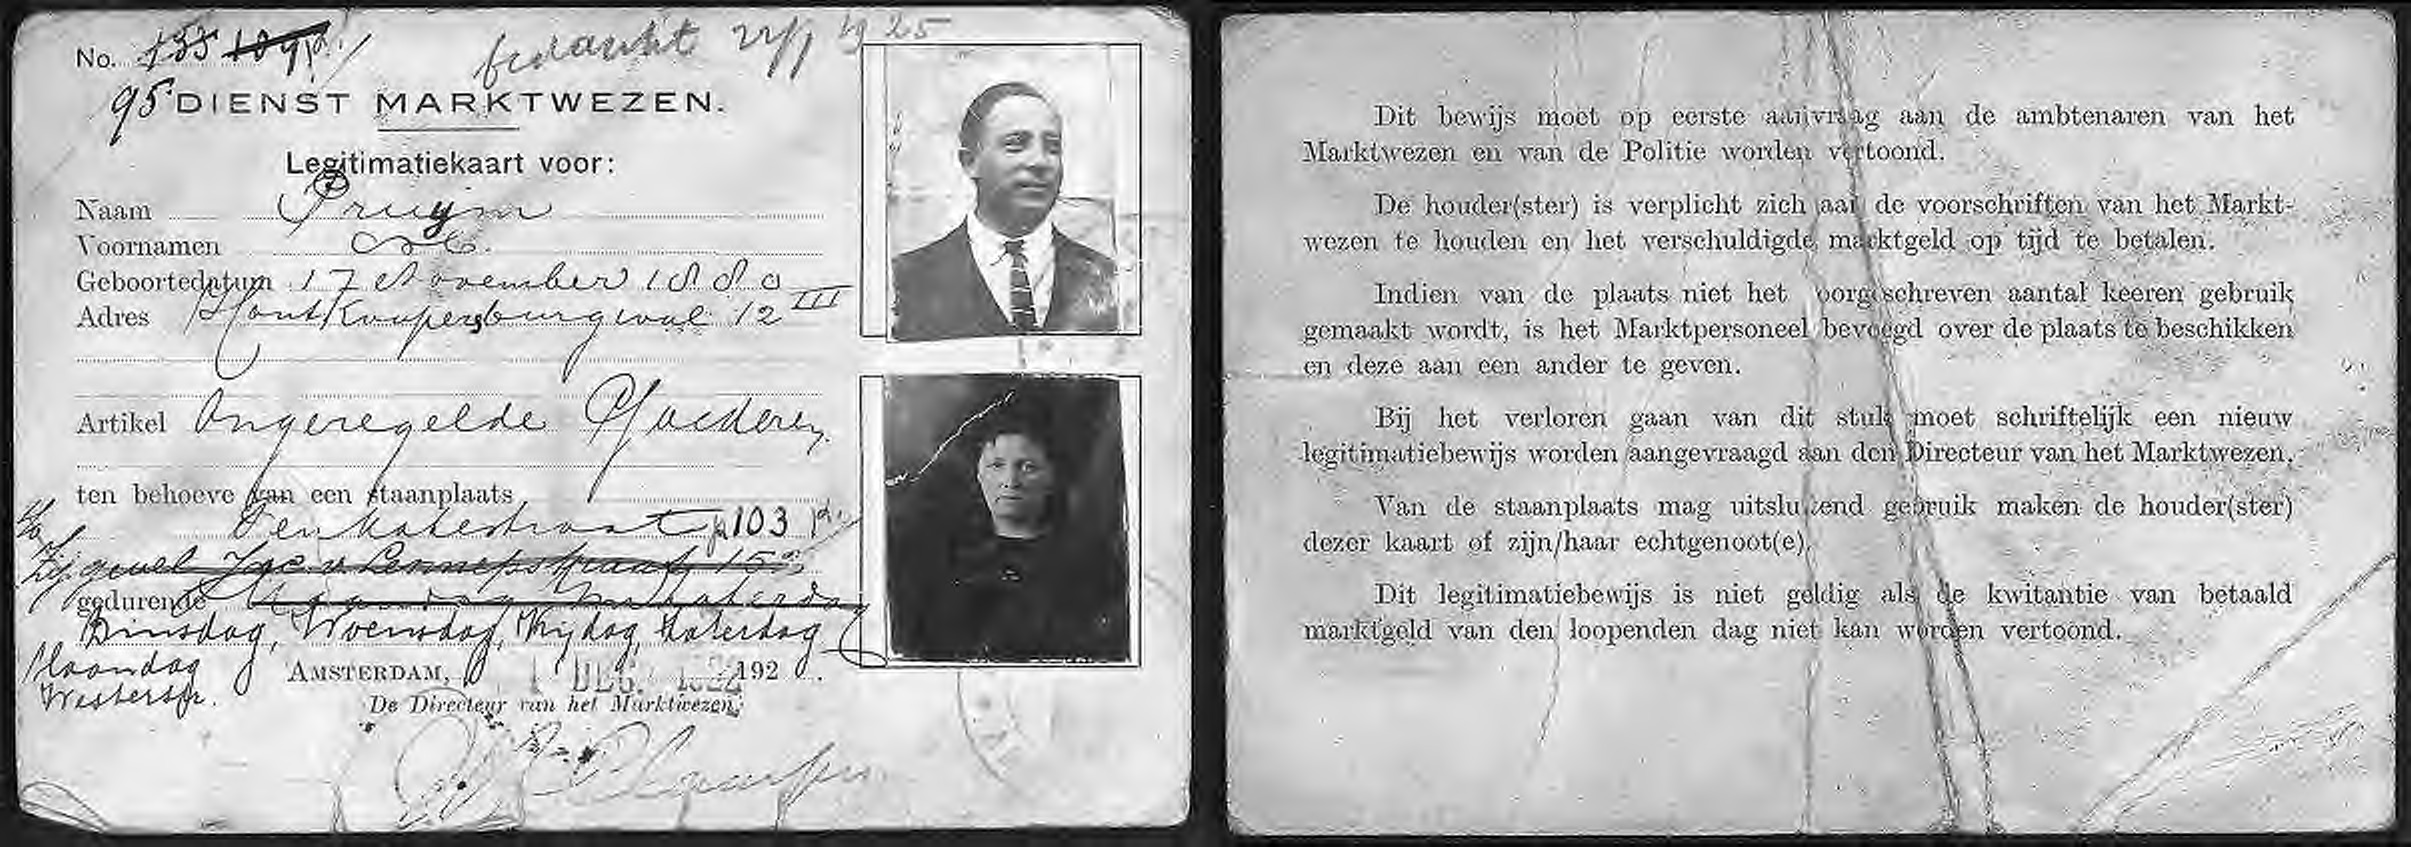 No. 133 109
bedankt 1925
95 DIENST MARKTWEZEN.
Legitimatiekaart voor:
Naam Pruijm
Voornamen
Geboortedatum 17 November 1880
Adres Houtkoopersburgwal 12 III
Artikel Ongeregelde Goederen
ten behoeve van een staanplaats
Ten Katestraat 103
Zijgevel Jac. v. Lennepstraat 15
gedurende Maandag Zaterdag
Dinsdag, Woensdag, Vrijdag, Zaterdag
Maandag
Westerstr.
AMSTERDAM, 1 DEC. 1922 192
De Directeur van het Marktwezen,
Dit bewijs moet op eerste aanvraag aan de ambtenaren van het
Marktwezen en van de Politie worden vertoond.
De houder(ster) is verplicht zich aan de voorschriften van het Markt-
wezen te houden en het verschuldigde marktgeld op tijd te betalen.
Indien van de plaats niet het voorgeschreven aantal keeren gebruik
gemaakt wordt, is het Marktpersoneel bevoegd over de plaats te beschikken
en deze aan een ander te geven.
Bij het verloren gaan van dit stuk moet schriftelijk een nieuw
legitimatiebewijs worden aangevraagd aan den Directeur van het Marktwezen.
Van de staanplaats mag uitsluitend gebruik maken de houder(ster)
dezer kaart of zijn/haar echtgenoot(e).
Dit legitimatiebewijs is niet geldig als de kwitantie van betaald
marktgeld van den loopenden dag niet kan worden vertoond.